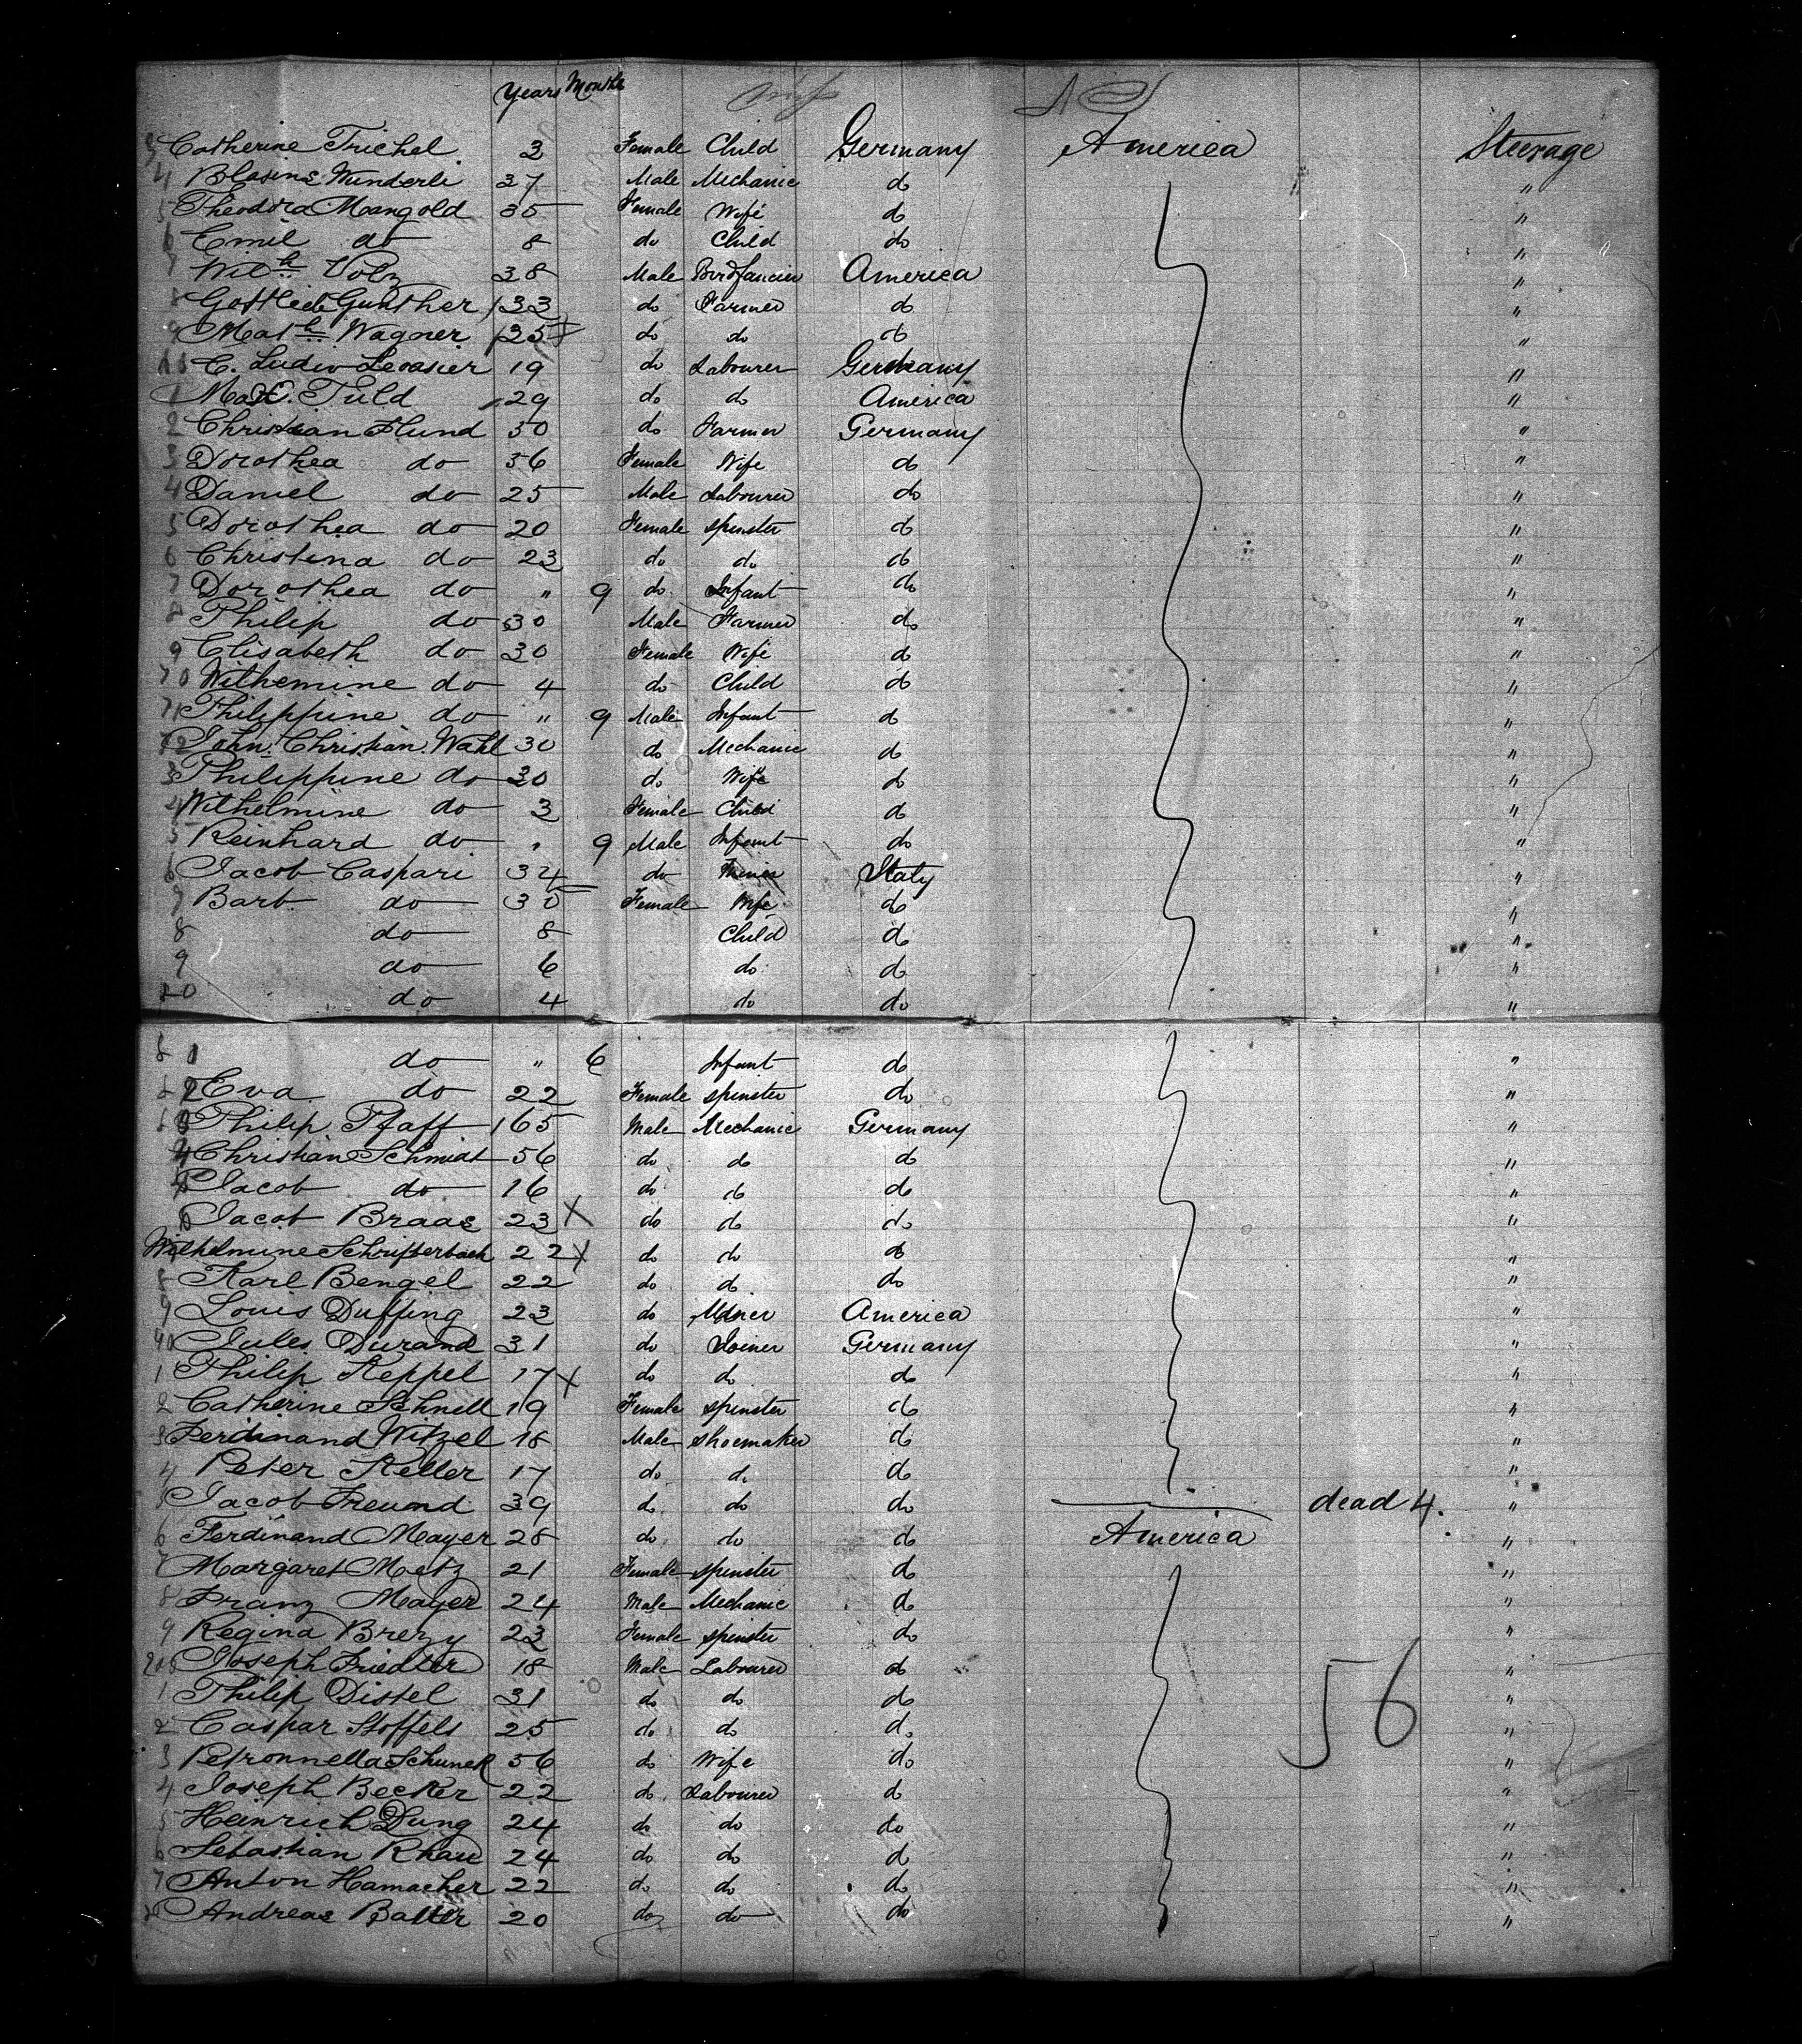 Years Months
3 Catherine Trichel 3 Female Child Germany America Steerage
4 Blasius Wunderli 37 Male Mechanic do "
5 Theodora Mangold 35 Female Wife do "
6 Emil do 8 do Child do "
7 Wilh Volz 38 Male Birdfancier America "
8 Gottlieb Gunther 33 do Farmer do "
9 Math Wagner 25 do do do "
C. Ludiv Levasier 19 do Labourer Germany "
1 Max. Tuld 29 do do America "
2 Christian Hund 30 do Farmer Germany "
3 Dorothea do 36 Female Wife do "
4 Daniel do 25 Male Labourer do "
5 Dorothea do 20 Female spinster do "
6 Christina do 23 do do do "
7 Dorothea do " 9 do Infant do "
8 Philip do 30 Male Farmer do "
9 Elisabeth do 30 Female Wife do "
70 Wilhemine do 4 do Child do "
71 Philippine do " 9 Male Infant do "
72 John. Christian. Wahl 30 do Mechanic do "
3 Philippine do 30 do Wife do "
4 Wilhelmine do 3 Female Child do "
5 Reinhard do " 9 Male Infant do "
6 Jacob Caspari 34 do Miner Italy "
7 Barb. do 30 Female Wife do "
8 do 8 Child do "
9 do 6 do do "
80 do 4 do do "
81 do " 6 Infant do "
82 Eva do 22 Female spinster do "
83 Philip Pfaff 65 Male Mechanic Germany "
4 Christian Schmidt 56 do do do "
5 Jacob do 16 do do do "
6 Jacob Braas 23 X do do do "
Wilhelmine Schrifterbach 22 X do do do "
8 Karl Bengel 22 do do do "
9 Louis Duffing 23 do Miner America "
90 Jules Durand 31 do Joiner Germany "
1 Philip Keppel 17 X do do do "
2 Catherine Schnell 19 Female spinster do "
3 Ferdinand Witzel 18 Male shoemaker do "
4 Peter Keller 17 do do do "
5 Jacob Freund 39 do do do dead 4. "
6 Ferdinand Mayer 28 do do do America "
7 Margaret Metz 21 Female spinster do "
8 Franz Mayer 24 Male Mechanic do "
9 Regina Brezy 23 Female spinster do "
200 Joseph Friedler 18 Male Labourer do "
1 Philip Distel 31 do do do 56 "
2 Caspar Stoffels 25 do do do "
3 Petronnella Schunek 56 do Wife do "
4 Joseph Becker 22 do Labourer do "
5 Heinrich Dung 24 do do do "
6 Sebastian Rhau 24 do do do "
7 Anton Hamacher 22 do do do "
Andreas Balter 20 do do do "